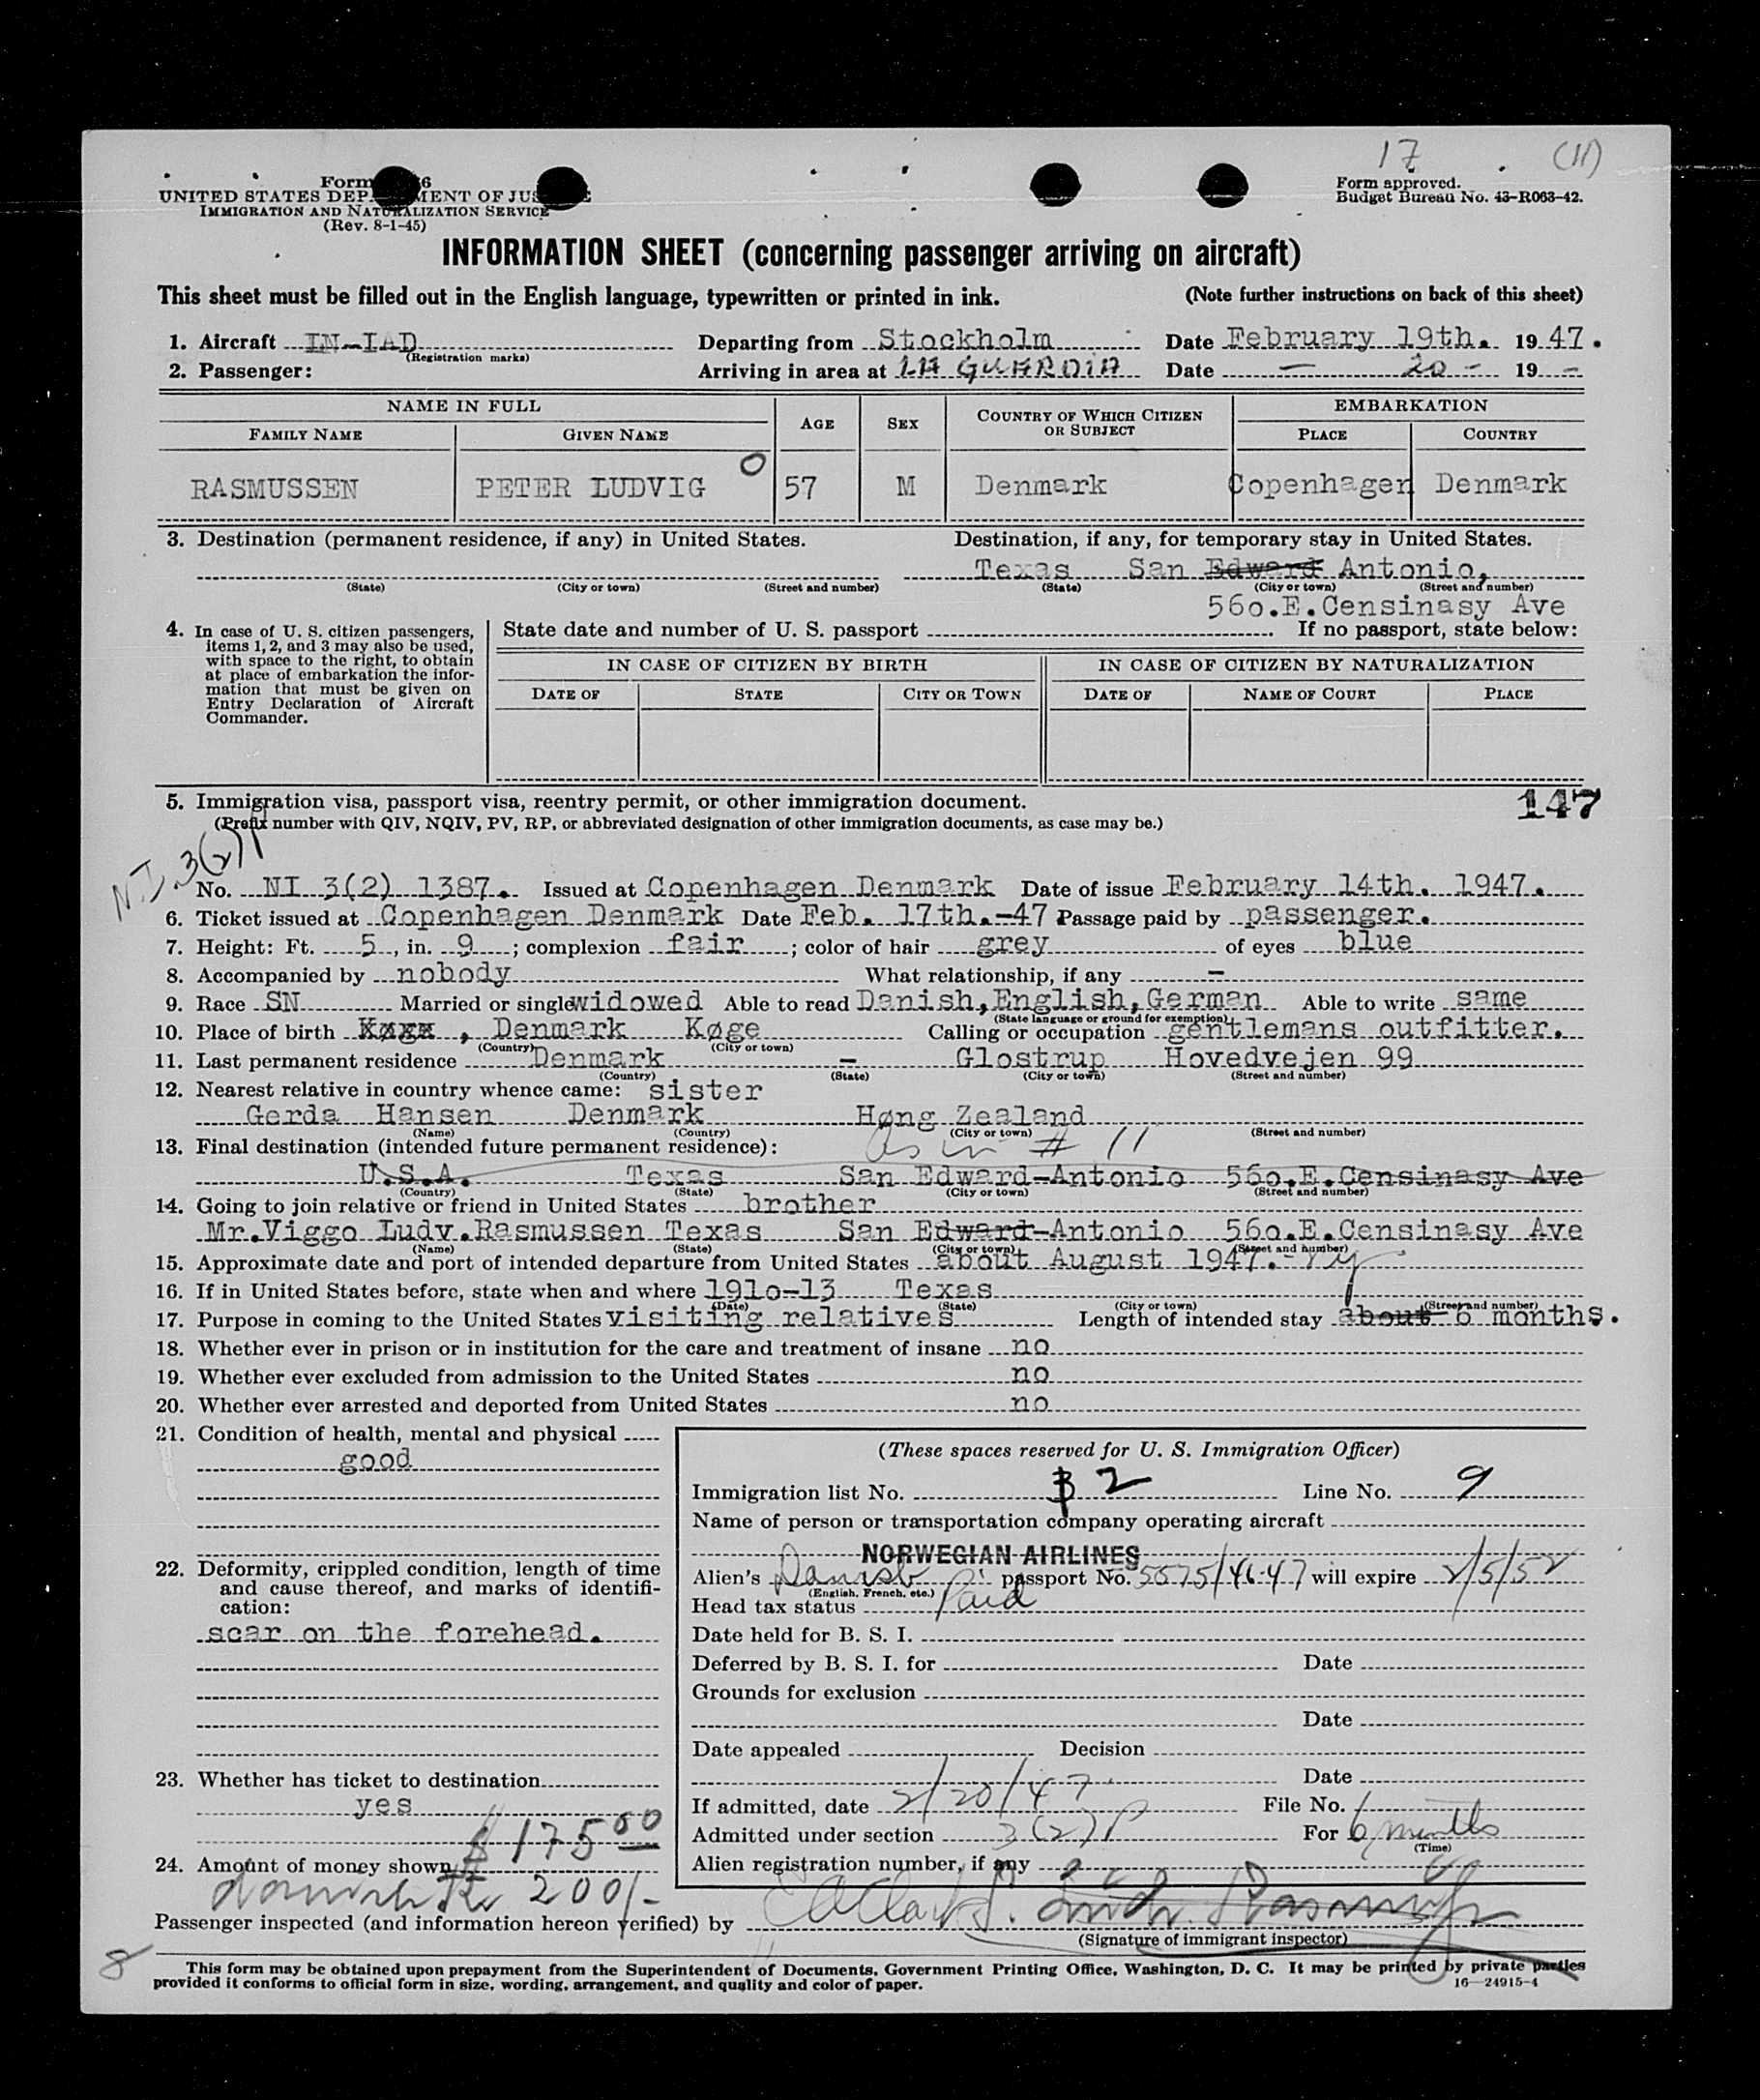 17 (11)
Form 6
UNITED STATES DEP MENT OF JUS E
IMMIGRATION AND NATURALIZATION SERVICE
(Rev. 8-1-45)
Form approved.
Budget Bureau No. 43-R063-42.
INFORMATION SHEET (concerning passenger arriving on aircraft)
This sheet must be filled out in the English language, typewritten or printed in ink. (Note further instructions on back of this sheet)
1. Aircraft IN-IAD Departing from Stockholm Date February 19th. 19 47.
(Registration marks)
2. Passenger: Arriving in area at LA GUARDIA Date — 20 - 19 -
NAME IN FULL AGE SEX COUNTRY OF WHICH CITIZEN OR SUBJECT EMBARKATION
FAMILY NAME GIVEN NAME PLACE COUNTRY
RASMUSSEN PETER LUDVIG O 57 M Denmark Copenhagen Denmark
3. Destination (permanent residence, if any) in United States. Destination, if any, for temporary stay in United States.
Texas San Edward Antonio,
(State) (City or town) (Street and number) (State) (City or town) (Street and number)
56o.E.Censinasy Ave
4. In case of U. S. citizen passengers, items 1, 2, and 3 may also be used, with space to the right, to obtain at place of embarkation the information that must be given on Entry Declaration of Aircraft Commander.
State date and number of U. S. passport If no passport, state below:
IN CASE OF CITIZEN BY BIRTH IN CASE OF CITIZEN BY NATURALIZATION
DATE OF STATE CITY OR TOWN DATE OF NAME OF COURT PLACE
5. Immigration visa, passport visa, reentry permit, or other immigration document. 147
(Prefix number with QIV, NQIV, PV, RP, or abbreviated designation of other immigration documents, as case may be.)
N.I. 3(2)
No. NI 3(2) 1387. Issued at Copenhagen Denmark Date of issue February 14th. 1947.
6. Ticket issued at Copenhagen Denmark Date Feb. 17th.-47 Passage paid by passenger.
7. Height: Ft. 5, in. 9; complexion fair; color of hair grey of eyes blue
8. Accompanied by nobody What relationship, if any -
9. Race SN Married or single widowed Able to read Danish,English,German Able to write same
(State language or ground for exemption)
10. Place of birth Køge , Denmark Køge Calling or occupation gentlemans outfitter.
(Country) (City or town)
11. Last permanent residence Denmark - Glostrup Hovedvejen 99
(Country) (State) (City or town) (Street and number)
12. Nearest relative in country whence came: sister
Gerda Hansen Denmark Høng Zealand
(Name) (Country) (City or town) (Street and number)
13. Final destination (intended future permanent residence): As in # 11
U.S.A. Texas San Edward-Antonio 56o.E.Censinasy Ave
(Country) (State) (City or town) (Street and number)
14. Going to join relative or friend in United States brother
Mr.Viggo Ludv.Rasmussen Texas San Edward-Antonio 56o.E.Censinasy Ave
(Name) (State) (City or town) (Street and number)
15. Approximate date and port of intended departure from United States about August 1947.- ny
16. If in United States before, state when and where 191o-13 Texas
(Date) (State) (City or town) (Street and number)
17. Purpose in coming to the United States visiting relatives Length of intended stay about 6 months.
18. Whether ever in prison or in institution for the care and treatment of insane no
19. Whether ever excluded from admission to the United States no
20. Whether ever arrested and deported from United States no
21. Condition of health, mental and physical
good
22. Deformity, crippled condition, length of time and cause thereof, and marks of identification:
scar on the forehead.
23. Whether has ticket to destination
yes
$ 175 00
24. Amount of money shown
danish Kr 200/-
(These spaces reserved for U. S. Immigration Officer)
Immigration list No. 2 Line No. 9
Name of person or transportation company operating aircraft
NORWEGIAN AIRLINES
Alien's Danish passport No. 5575/46-47 will expire 2/5/52
(English, French, etc.)
Head tax status Paid
Date held for B. S. I.
Deferred by B. S. I. for Date
Grounds for exclusion
Date
Date appealed Decision
Date
If admitted, date 2/20/47 File No.
Admitted under section 3(2) P For 6 months
(Time)
Alien registration number, if any
Passenger inspected (and information hereon verified) by
(Signature of immigrant inspector)
8
This form may be obtained upon prepayment from the Superintendent of Documents, Government Printing Office, Washington, D. C. It may be printed by private parties
provided it conforms to official form in size, wording, arrangement, and quality and color of paper. 16—24915-4